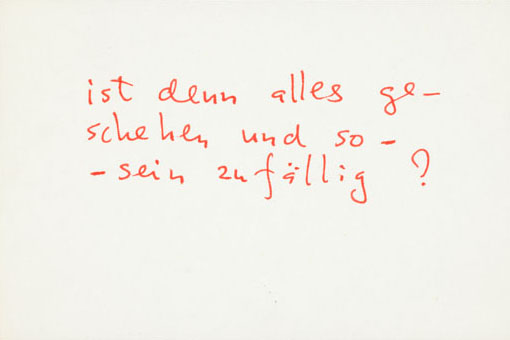 ist denn alles ge-
schehen und so-
-sein zufällig ?